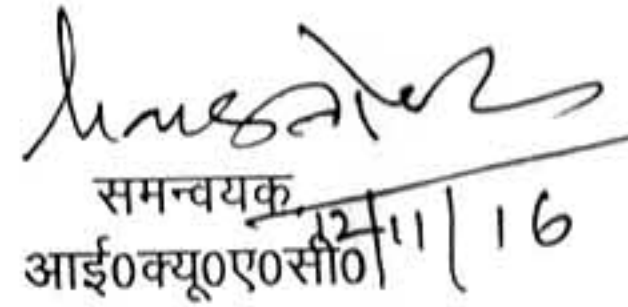 समन्वयक
आई०क्यू०ए०सी०
12/11/16